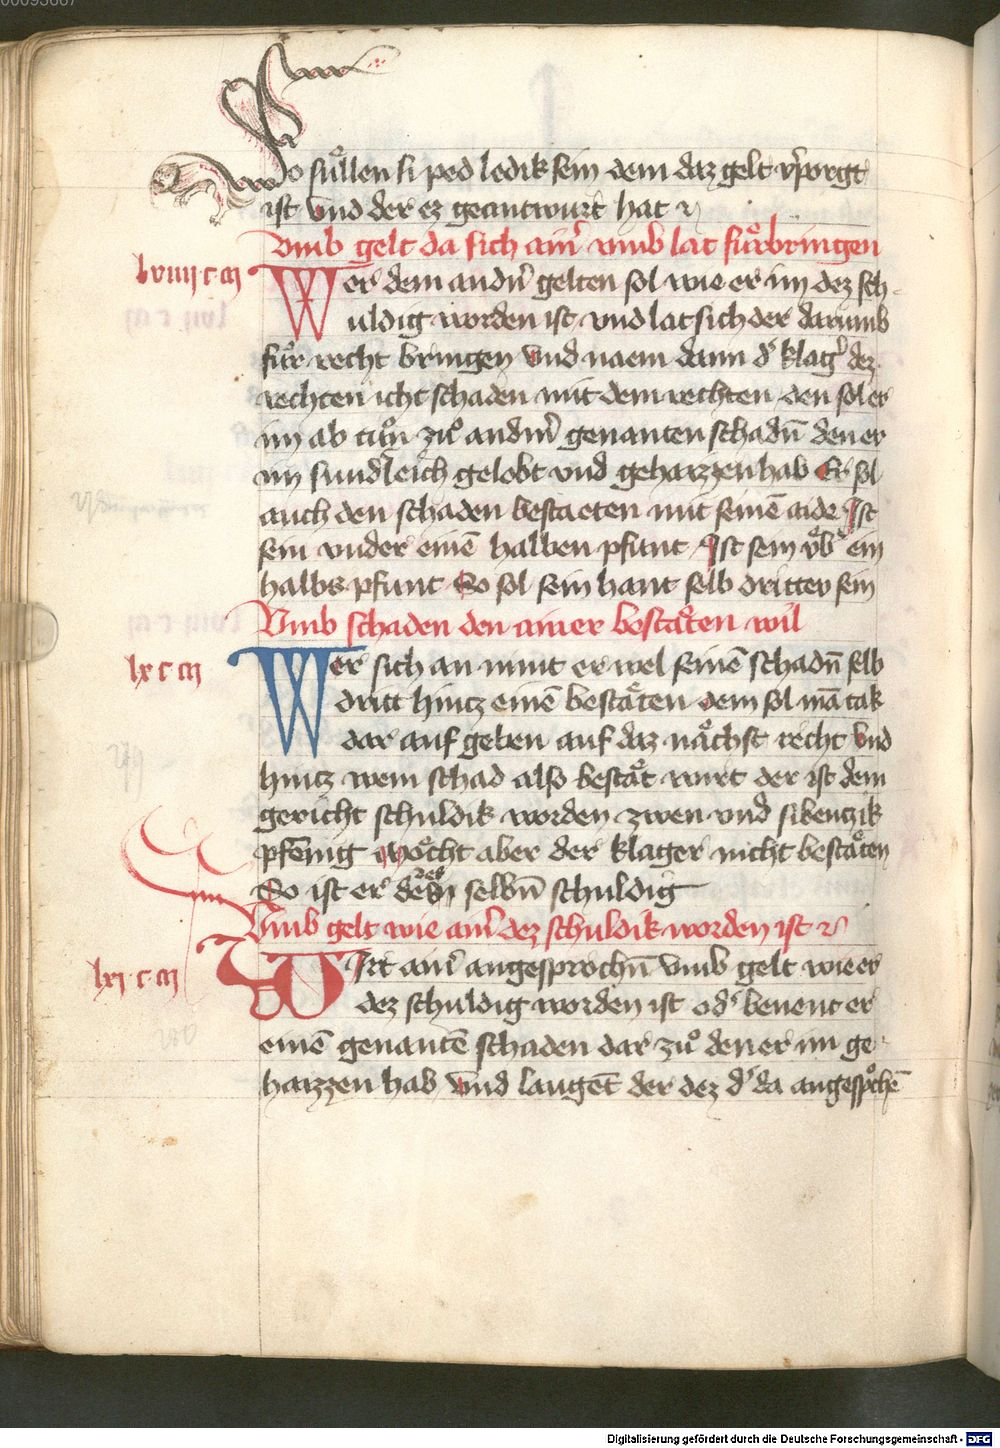 So sullen si ped ledik sein dem daz gelt v̾porgt
ist Vnd der ez geantwurt hat ꝛc
Vmb gelt da sich ain̾ vmb lat fuͤrbringen
lviiij c m
Wer dem andn̾ gelten sol wie er im dez sch-
uldig worden ist vnd lat sich der darumb
fuͤr recht bringen Vnd naem dann d̾ klag̾ dez
rechten icht schaden mit dem rechten den sol er
im ab tuͦn zuͦ andm̾ genanten schadn̄ den er
im sundleich gelobt vnd gehaizzen hab Er sol
auch den schaden bestaeten mit seinē aide Ist
sein vnder einē halben pfunt Ist sein v̈b̾ ein
halbs pfunt So sol sein hant selb dritter sein
Vmb schaden den ainer bestaͤten wil
lx c m
Wer sich an nimt er wel seinē schadn̄ selb
dritt hintz einē bestaͤten dem sol mā tak
dar auf geben auf daz naͤchst recht Vnd
hintz wem schad also bestaͤt wirt der ist dem
gericht schuldik worden zwen vnd sibentzik
pfēnig Moͤcht aber der klager nicht bestaͤten
So ist er dez selbn̄ schuldig
Vmb gelt wie ain̾ dez schuldik worden ist ꝛc
lxj c m
Wirt ain̾ angesprochn̄ vmb gelt wie er
dez schuldig worden ist od̾ benent er
einē genantē schaden dar zuͦ den er im ge-
haizzen hab Vnd laugēt der dez d̾ da angesprochē
Digitalisierung gefördert durch die Deutsche Forschungsgemeinschaft - DFG